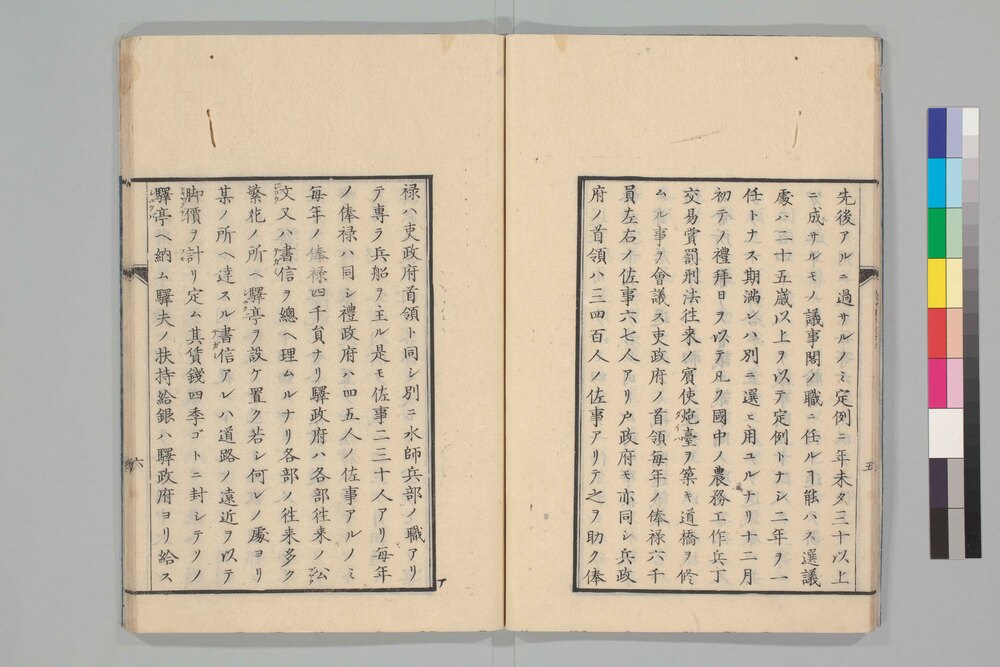 先後アルニ過サルノミ定例ニ年未タ三十以上
ニ成サルモノ議事閣ノ職ニ任ルヿ能ハス選議
處ハ二十五歳以上ヲ以テ定例トナシ二年ヲ一
任トナス期満レハ別ニ選ヒ用ユルナリ十二月
初テノ禮拜日ヲ以テ凡ソ國中ノ農務工作兵丁
交易賞罰刑法往来ノ賓使炮臺ヲ築キ道橋ヲ修
ムル事ヲ會議ス吏政府ノ首領毎年ノ俸禄六千
員左右ノ佐事六七人アリ户政府モ亦同シ兵政
府ノ首領ハ三四百人ノ佐事アリテ之ヲ助ク俸
五
禄ハ吏政府首領ト同シ別ニ水師兵部ノ職アリ
テ專ラ兵船ヲ主ル是モ佐事二三十人アリ毎年
ノ俸禄ハ同シ禮政府ハ四五人ノ佐事アルノミ
毎年ノ俸禄四千員ナリ驛政府ハ各部往来ノ公
文又ハ書信ヲ總ヘ理ムルナリ各部ノ往来多ク
繁花ノ所ヘ驛亭ヲ設ケ置ク若シ何レノ處ヨリ
某ノ所ヘ達スル書信アレハ道路ノ遠近ヲ以テ
脚價ヲ計リ定ム其賃錢四季ゴトニ封シテソノ
驛亭ヘ納ム驛夫ノ扶持給銀ハ驛政府ヨリ給ス
六